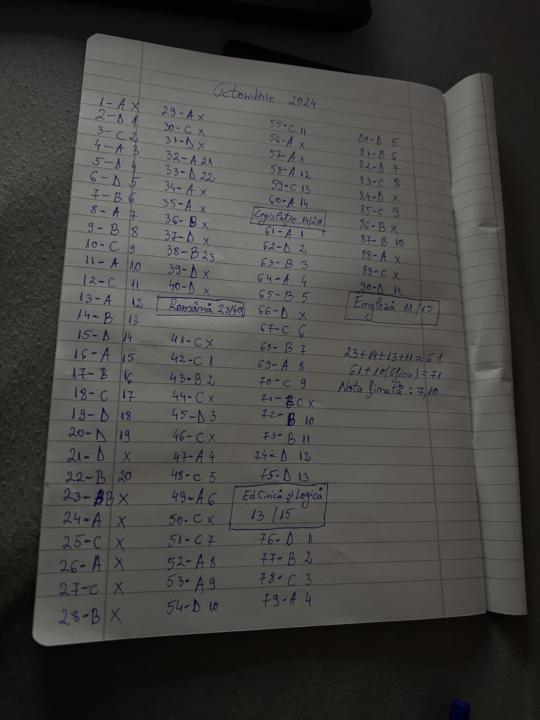 Octombrie 2024
1-A X
2-D 1
3-C 2
4-A 3
5-D 4
6-D 5
7-B 6
8-A 7
9-B 8
10-C 9
11-A 10
12-C 11
13-A 12
14-B 13
15-D 14
16-A 15
17-B 16
18-C 17
19-D 18
20-D 19
21-D X
22-B 20
23-B X
24-A X
25-C X
26-A X
27-C X
28-B X
29-A X
30-C X
31-D X
32-A 21
33-D 22
34-A X
35-A X
36-B X
37-D X
38-B 23
39-D X
40-D X
Română 23/40
41-C X
42-C 1
43-B 2
44-C X
45-D 3
46-C X
47-A 4
48-C 5
49-A 6
50-C X
51-C 7
52-A 8
53-A 9
54-D 10
55-C 11
56-A X
57-A X
58-A 12
59-C 13
60-A 14
Legislație 14/20
61-A 1
62-D 2
63-B 3
64-A 4
65-B 5
66-D X
67-C 6
68-B 7
69-A 8
70-C 9
71-C X
72-B 10
73-B 11
74-D 12
75-D 13
Ed. Civică și Logică
13/15
76-D 1
77-B 2
78-C 3
79-A 4
80-D 5
81-B 6
82-D 7
83-C 8
84-D X
85-C 9
86-B X
87-B 10
88-A X
89-C X
90-D 11
Engleză 11/15
23+14+13+11=61
61+10(oficiu)=71
Nota finală: 7,10